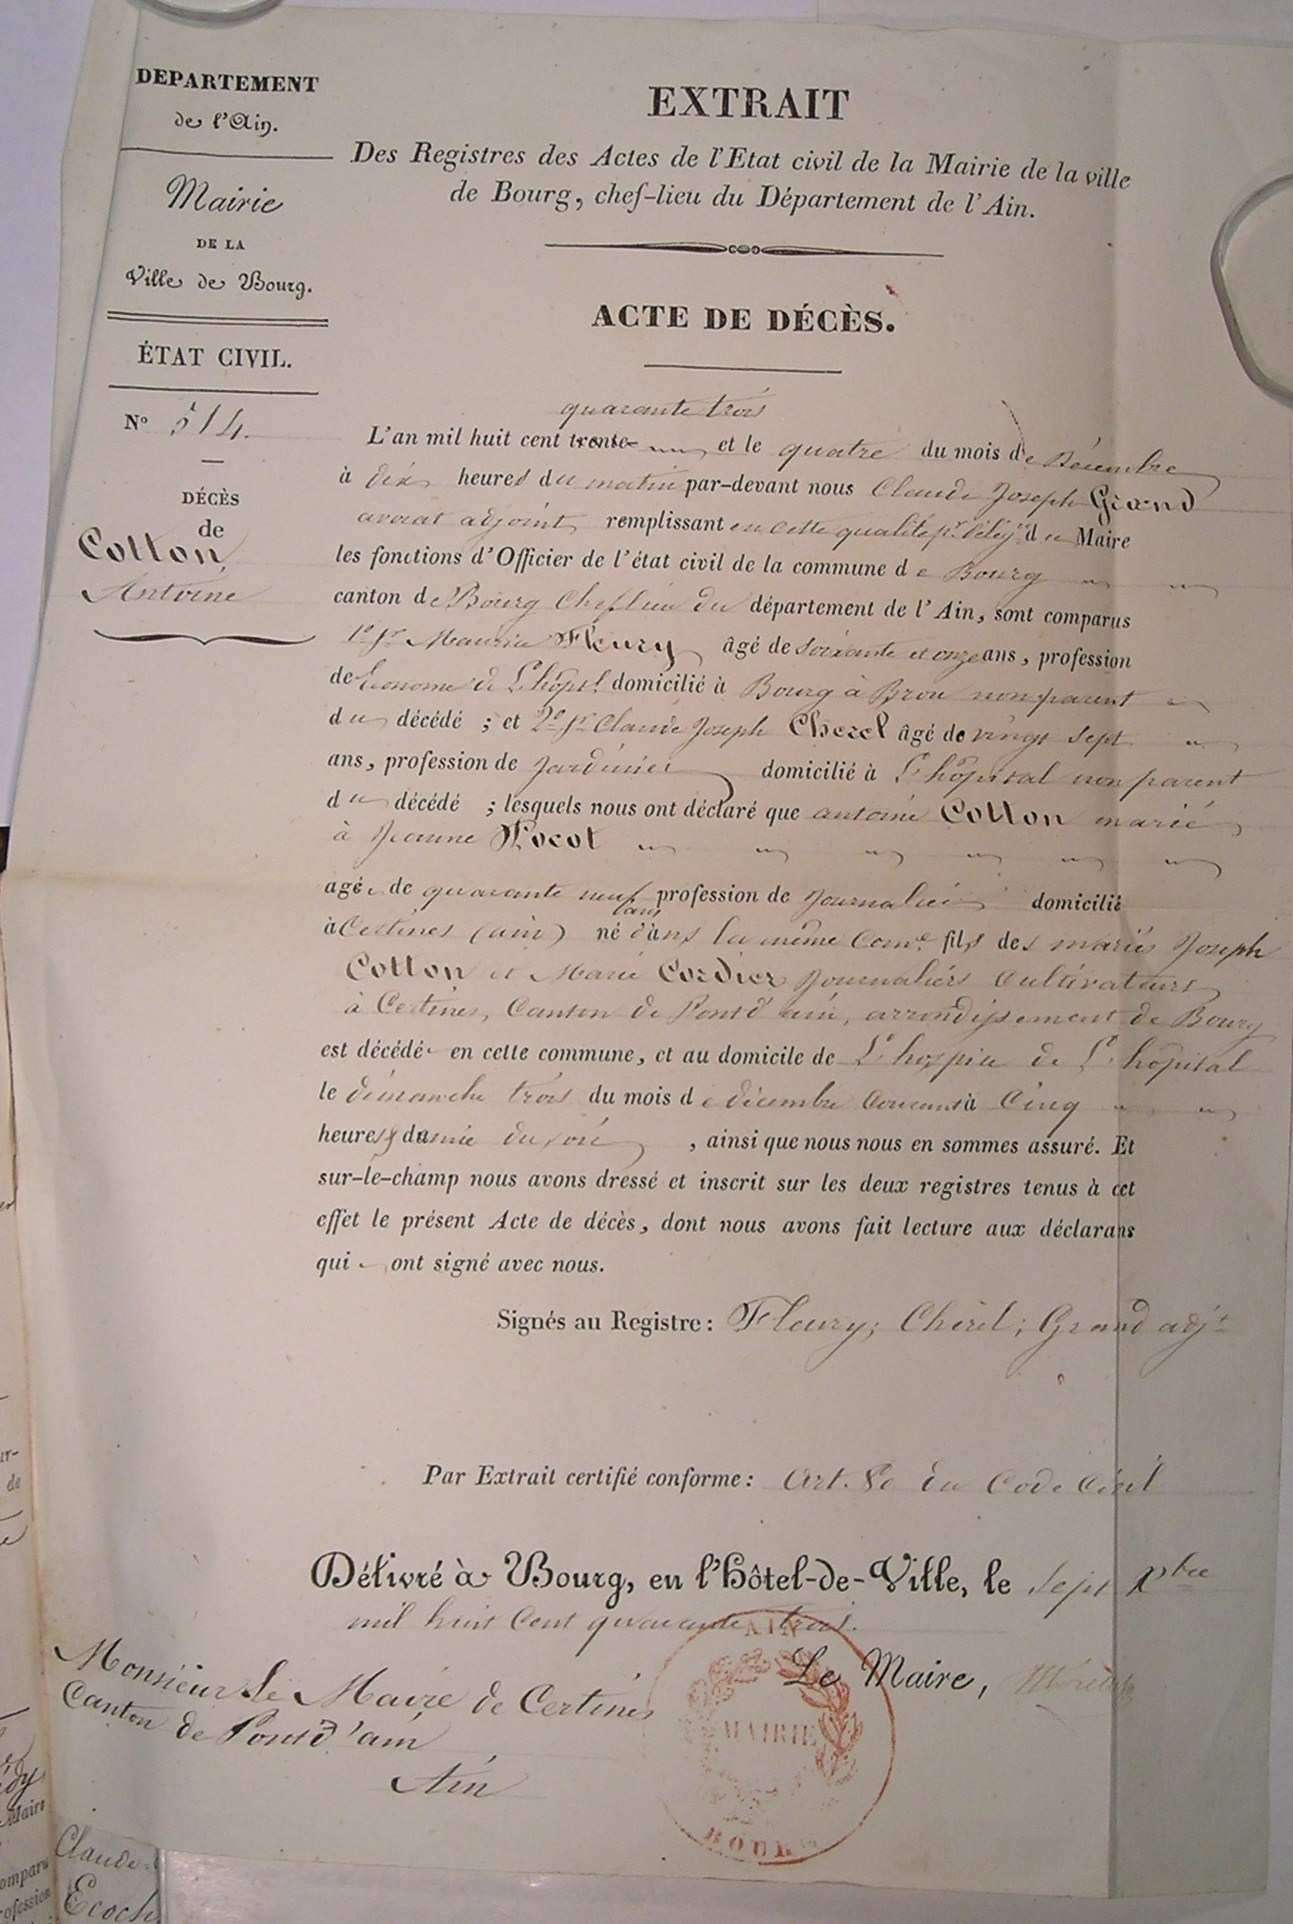 DEPARTEMENT
de l'Ain.
Mairie
DE LA
Ville de Bourg.
ÉTAT CIVIL.
N° 514.
DÉCÈS
de
Cotton,
Antoine
EXTRAIT
Des Registres des Actes de l'Etat civil de la Mairie de la ville
de Bourg, chef-lieu du Département de l'Ain.
ACTE DE DÉCÈS.
quarante trois
L'an mil huit cent trente et le quatre du mois de Décembre
à dix heures du matin par-devant nous Claude Joseph Grand
avocat adjoint, remplissant en cette qualité pr délégon du Maire
les fonctions d'Officier de l'état civil de la commune de Bourg
canton de Bourg Chef lieu du département de l'Ain, sont comparus
1° Sr Maurice Fleury âgé de soixante et onze ans, profession
de Econome de L'hôpal domicilié à Bourg à Brou non parent
du décédé ; et 2° Sr Claude Joseph Cherel âgé de vingt sept
ans, profession de Jardinier domicilié à L'hôpital non parent
du décédé ; lesquels nous ont déclaré que antoine Cotton marié
à Jeanne Pocot
agé de quarante neuf ans profession de Journalier domicilié
à Certines (ain) né dans la même Comne fils des mariés Joseph
Cotton et Marie Cordier Journaliers Cultivateurs
à Certines, Canton de Pont d'ain, arrondissement de Bourg
est décédé en cette commune, et au domicile de L'hospice de L'hôpital
le dimanche trois du mois de décembre Courant à Cinq
heures & demie du soir, ainsi que nous nous en sommes assuré. Et
sur-le-champ nous avons dressé et inscrit sur les deux registres tenus à cet
effet le présent Acte de décès, dont nous avons fait lecture aux déclarans
qui ont signé avec nous.
Signés au Registre : Fleury ; Cherel ; Grand adjt
Par Extrait certifié conforme : Art. 80 du Code Civil
Délivré à Bourg, en l'Hôtel-de-Ville, le sept Xbre
mil huit Cent quarante trois.
Le Maire,
AIN
MAIRIE
BOURG
Monsieur Le Maire de Certines
Canton de Pont d'ain
Ain
Claude
Ecoch